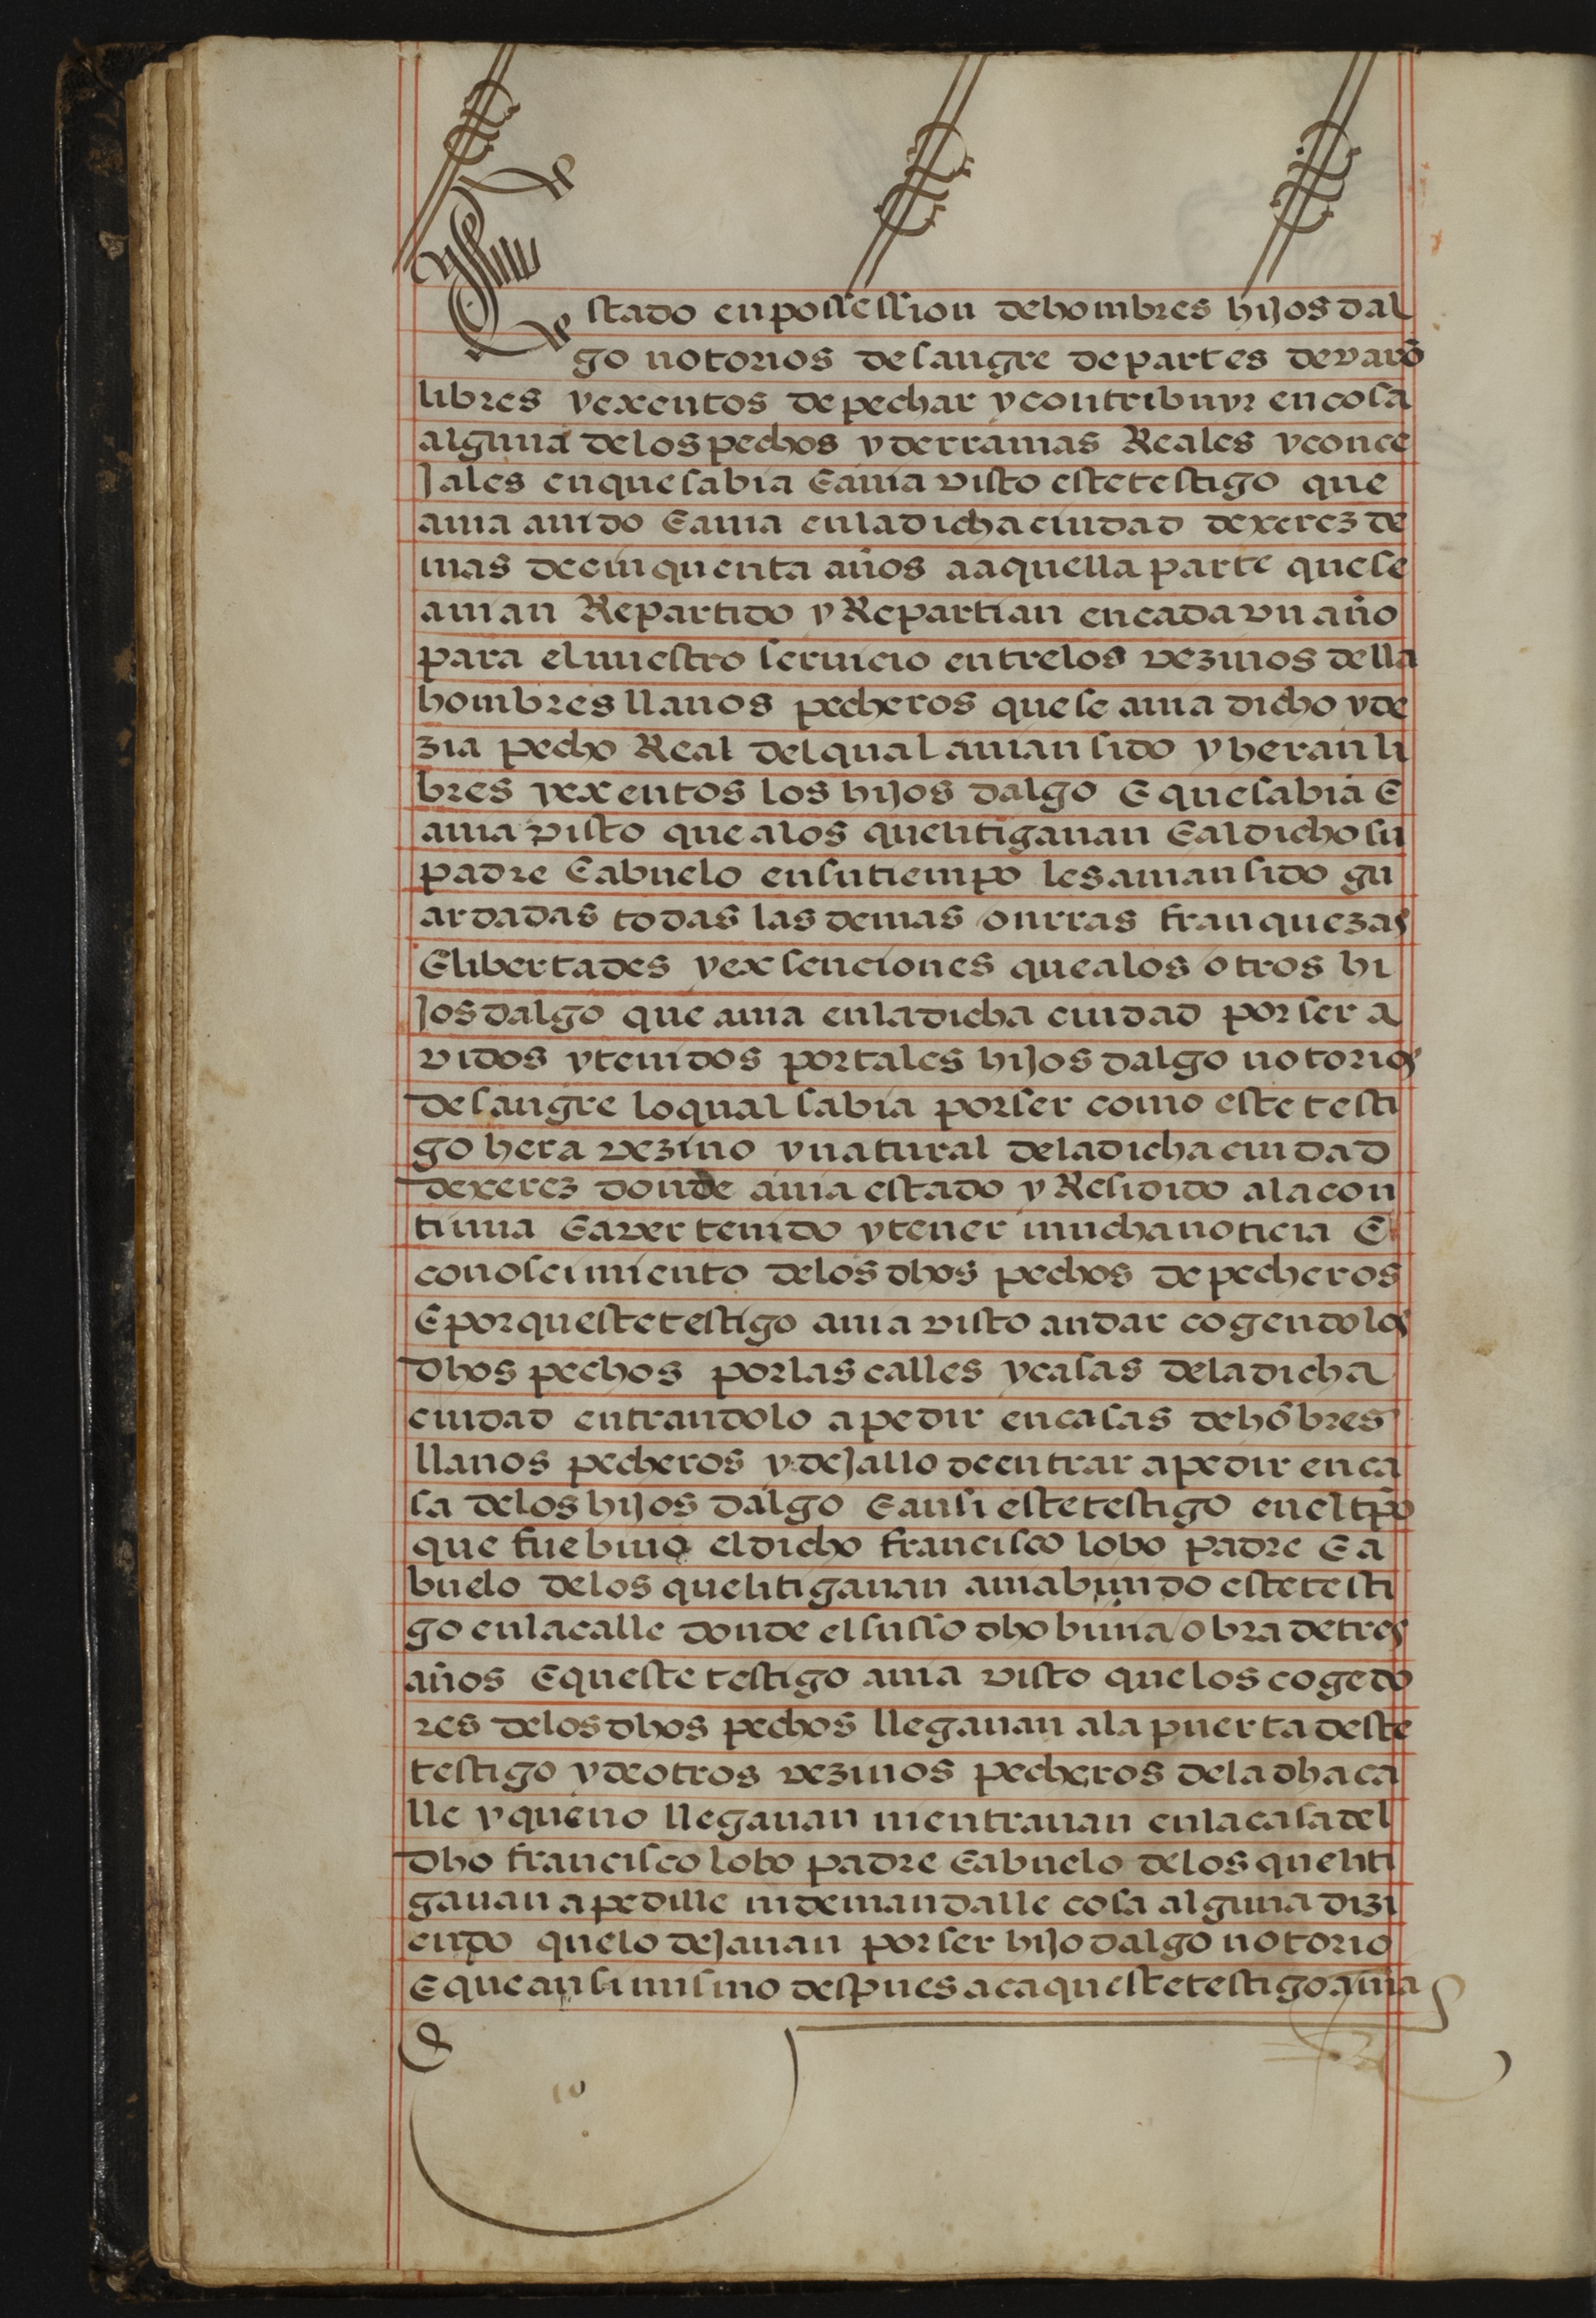 Estado en possession de hombres hijos dal
go notorios de sangre de partes de varō
libres y exentos de pechar y contribuyr en cosa
alguna de los pechos y derramas Reales y conce
jales en que sabia E auia visto este testigo que
auia auido E auia en la dicha ciudad de xerez de
mas de cinquenta años a aquella parte que se
auian Repartido y Repartian en cada vn año
para el nuestro seruicio entre los vezinos della
hombres llanos pecheros que se auia dicho y de
zia pecho Real del qual auian sido y heran li
bres y exentos los hijos dalgo E que sabia E
auia visto que a los que litigauan E al dicho su
padre E abuelo en su tiempo les auian sido gu
ardadas todas las demas onrras franquezas
E libertades y exsenciones que a los otros hi
jos dalgo que auia en la dicha ciudad por ser a
vidos y tenidos por tales hijos dalgo notorios
de sangre lo qual sabia por ser como este testi
go hera vezino y natural de la dicha ciudad
de xerez donde auia estado y Residido a la con
tinua E aver tenido y tener mucha noticia E
conoscimiento de los dhos pechos de pecheros
E porqueste testigo auia visto andar cogendo los
dhos pechos por las calles y casas de la dicha
ciudad entrandolo a pedir en casas de hōbres
llanos pecheros y dejallo de entrar a pedir en ca
sa de los hijos dalgo E ansi este testigo en el tpō
que fue biuo el dicho francisco lobo padre E a
buelo de los que litigauan auia buiido este testi
go en la calle donde el susso dho biuia obra de tres
años E queste testigo auia visto que los cogedo
res de los dhos pechos llegauan a la puerta deste
testigo y de otros vezinos pecheros de la dha ca
lle y que no llegauan ni entrauan en la casa del
dho francisco lobo padre E abuelo de los que liti
gauan a pedille ni demandalle cosa alguna dizi
endo que lo dejauan por ser hijo dalgo notorio
E que ansi mismo despues aca queste testigo auia